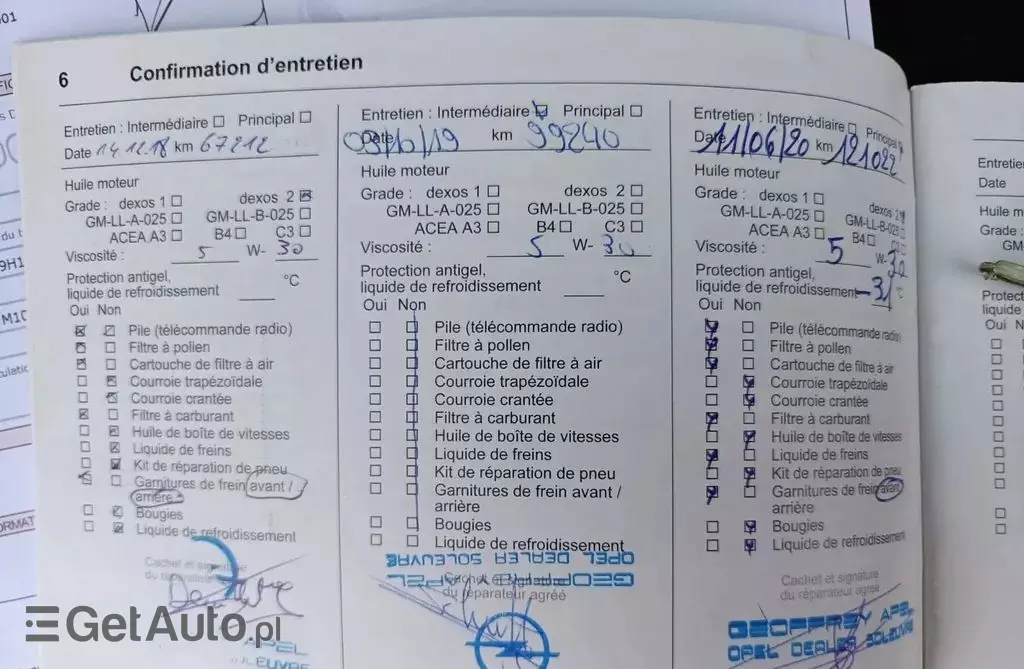 6 Confirmation d'entretien
Entretien : Intermédiaire ☐ Principal ☐
Date 14.12.18 km 67212
Huile moteur
Grade : dexos 1 ☐ dexos 2 ☒
GM-LL-A-025 ☐ GM-LL-B-025 ☐
ACEA A3 ☐ B4 ☐ C3 ☐
Viscosité : 5 W- 30
Protection antigel,
liquide de refroidissement °C
Oui Non
Pile (télécommande radio)
Filtre à pollen
Cartouche de filtre à air
Courroie trapézoïdale
Courroie crantée
Filtre à carburant
Huile de boîte de vitesses
Liquide de freins
Kit de réparation de pneu
Garnitures de frein avant /
arrière
Bougies
Liquide de refroidissement
Cachet et signature
du réparateur
APEL
SOLEUVRE
Entretien : Intermédiaire ☑ Principal ☐
Date km 99240
Huile moteur
Grade : dexos 1 ☐ dexos 2 ☐
GM-LL-A-025 ☐ GM-LL-B-025 ☐
ACEA A3 ☐ B4 ☐ C3 ☐
Viscosité : 5 W- 30
Protection antigel,
liquide de refroidissement °C
Oui Non
Pile (télécommande radio)
Filtre à pollen
Cartouche de filtre à air
Courroie trapézoïdale
Courroie crantée
Filtre à carburant
Huile de boîte de vitesses
Liquide de freins
Kit de réparation de pneu
Garnitures de frein avant /
arrière
Bougies
Liquide de refroidissement
OPEL DEALER SOLEUVRE
GEOFFREY APEL
Cachet et signature
du réparateur agréé
Entretien : Intermédiaire ☐ Principal
Date 11/06/20 km 121022
Huile moteur
Grade : dexos 1 ☐ dexos 2
GM-LL-A-025 ☐ GM-LL-B-025 ☐
ACEA A3 ☐ B4 ☐
Viscosité : 5 W- 30
Protection antigel,
liquide de refroidissement -31 °C
Oui Non
Pile (télécommande radio)
Filtre à pollen
Cartouche de filtre à air
Courroie trapézoïdale
Courroie crantée
Filtre à carburant
Huile de boîte de vitesses
Liquide de freins
Kit de réparation de pneu
Garnitures de frein avant
arrière
Bougies
Liquide de refroidissement
Cachet et signature
du réparateur agréé
GEOFFREY APEL
OPEL DEALER SOLEUVRE
Entretien
Date
Huile m
Grade :
GM
Protect
liquide
Oui N
GetAuto.pl